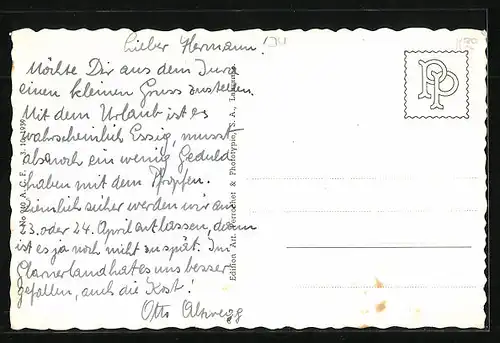 Lieber Hermann!
Möchte Dir aus dem Jura
einen kleinen Gruss zustellen.
Mit dem Urlaub ist es
wahrscheinlich Essig, musst
also noch ein wenig Geduld
haben mit dem Pfropfen.
Ziemlich sicher werden wir am
23. oder 24. April entlassen, dann
ist es ja noch nicht zu spät. Im
Glarnerland hat es uns besser
gefallen, auch die Kost!
Otto
Edition Art. Perrochet & Phototypie, S. A., Lausanne
PP